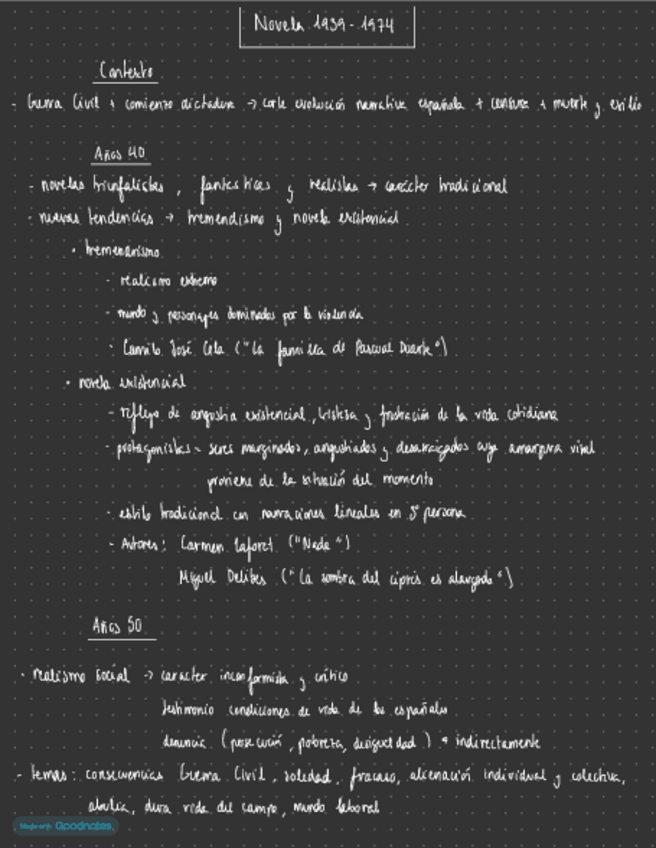 Novela 1939-1974
Contexto
- Guerra Civil + comienzo dictadura → corte evolución narrativa española + censura + muerte y exilio
Años 40
- novelas triunfalistas, fantásticas y realistas → carácter tradicional
- nuevas tendencias → tremendismo y novela existencial
· tremendismo
- realismo extremo
- mundo y personajes dominados por la violencia
- Camilo José Cela ("La familia de Pascual Duarte")
· novela existencial
- reflejo de angustia existencial, tristeza y frustración de la vida cotidiana
- protagonistas = seres marginados, angustiados y desarraigados cuya amargura vital
proviene de la situación del momento
- estilo tradicional con narraciones lineales en 3ª persona
- Autores: Carmen Laforet ("Nada")
Miguel Delibes ("La sombra del ciprés es alargada")
Años 50
- realismo social → carácter inconformista y crítico
testimonio condiciones de vida de los españoles
denuncia (persecución, pobreza, desigualdad) indirectamente
- temas: consecuencias Guerra Civil, soledad, fracaso, alienación individual y colectiva,
abulia, dura vida del campo, mundo laboral
Goodnotes